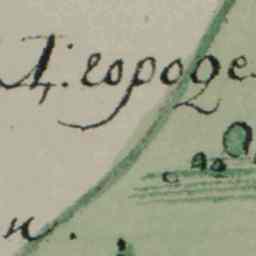 Д. городе
н.